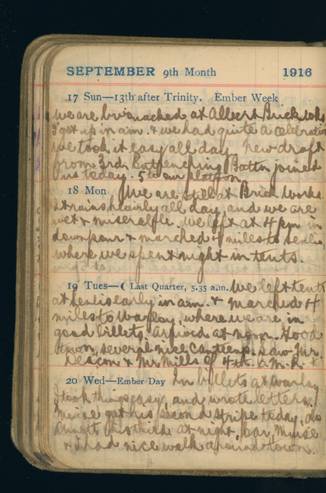 SEPTEMBER 9th Month 1916
17 Sun—13th after Trinity. Ember Week
We are bivouacked at Albert Brick Wks
I got up in a.m. & we had quite a celebration
We took it easy all day. New draft
from 3rd Entrenching Battn joined
us today. 5 to our platoon
18 Mon We are still at Brick Works
It rains all day, and we are
wet & miserable. We left at 4 pm in
downpour & marched miles to
where we spent night in tents.
19 Tues—☾ Last Quarter, 5.35 a.m. We left tents
at early in a.m. & marched 4
miles to Warloy, where we are in
good billets. Arrived at noon. Good
town, several nice Saw Mr.
Deacon & Mr. Mills of 4th
20 Wed—Ember Day In billets at Warloy
took things easy, and wrote letters.
got his second stripe today, do
at night,
& I had nice walk around town.